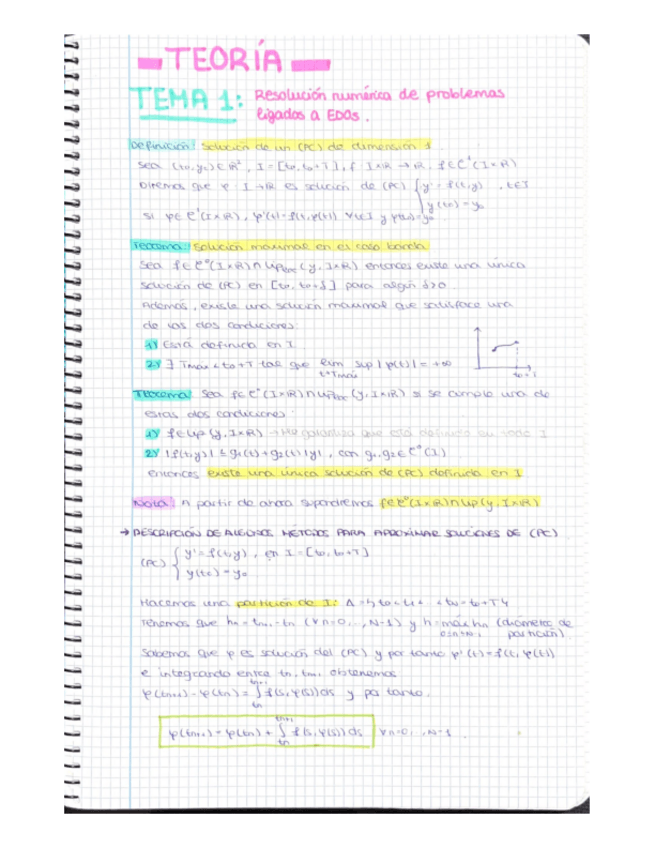 TEORÍA
TEMA 1: Resolución numérica de problemas
ligados a EDOs.
Definición: Solución de un (PC) de dimensión 1
Sea (t0, y0) ∈ R², I = [t0, t0+T], f: I×R → R, f ∈ C⁰(I×R)
Diremos que φ: I → R es solución de (PC) { y' = f(t,y), t∈I
y(t0) = y0
si φ ∈ C¹(I×R), φ'(t) = f(t, φ(t)) ∀t∈I y φ(t0) = y0
Teorema: Solución maximal en el caso banda
Sea f ∈ C⁰(I×R) ∩ Liploc(y, I×R) entonces existe una única
solución de (PC) en [t0, t0+δ] para algún δ>0.
Además, existe una solución maximal que satisface una
de las dos condiciones:
1) Está definida en I
2) ∃ Tmax < t0+T tal que lim sup |φ(t)| = +∞
t→Tmax
t0+T
Teorema: Sea f ∈ C⁰(I×R) ∩ Liploc(y, I×R) si se cumple una de
estas dos condiciones:
1) f ∈ Lip(y, I×R) → Me garantiza que está definida en todo I
2) |f(t,y)| ≤ g1(t) + g2(t)|y|, con g1, g2 ∈ C⁰(I)
entonces existe una única solución de (PC) definida en I
Nota: A partir de ahora supondremos f ∈ C⁰(I×R) ∩ Lip(y, I×R)
→ DESCRIPCIÓN DE ALGUNOS MÉTODOS PARA APROXIMAR SOLUCIONES DE (PC)
(PC) { y' = f(t,y), en I = [t0, t0+T]
y(t0) = y0
Hacemos una partición de I: Δ = {t0 < t1 < ... < tN = t0+T}
Tenemos que hn = tn+1 - tn (∀n=0,..,N-1) y h = máx hn (diámetro de
0≤n≤N-1 partición)
Sabemos que φ es solución del (PC) y por tanto φ'(t) = f(t, φ(t))
e integrando entre tn, tn+1 obtenemos
φ(tn+1) - φ(tn) = ∫tn^tn+1 f(s, φ(s)) ds y por tanto,
φ(tn+1) = φ(tn) + ∫tn^tn+1 f(s, φ(s)) ds ∀n=0,..,N-1.